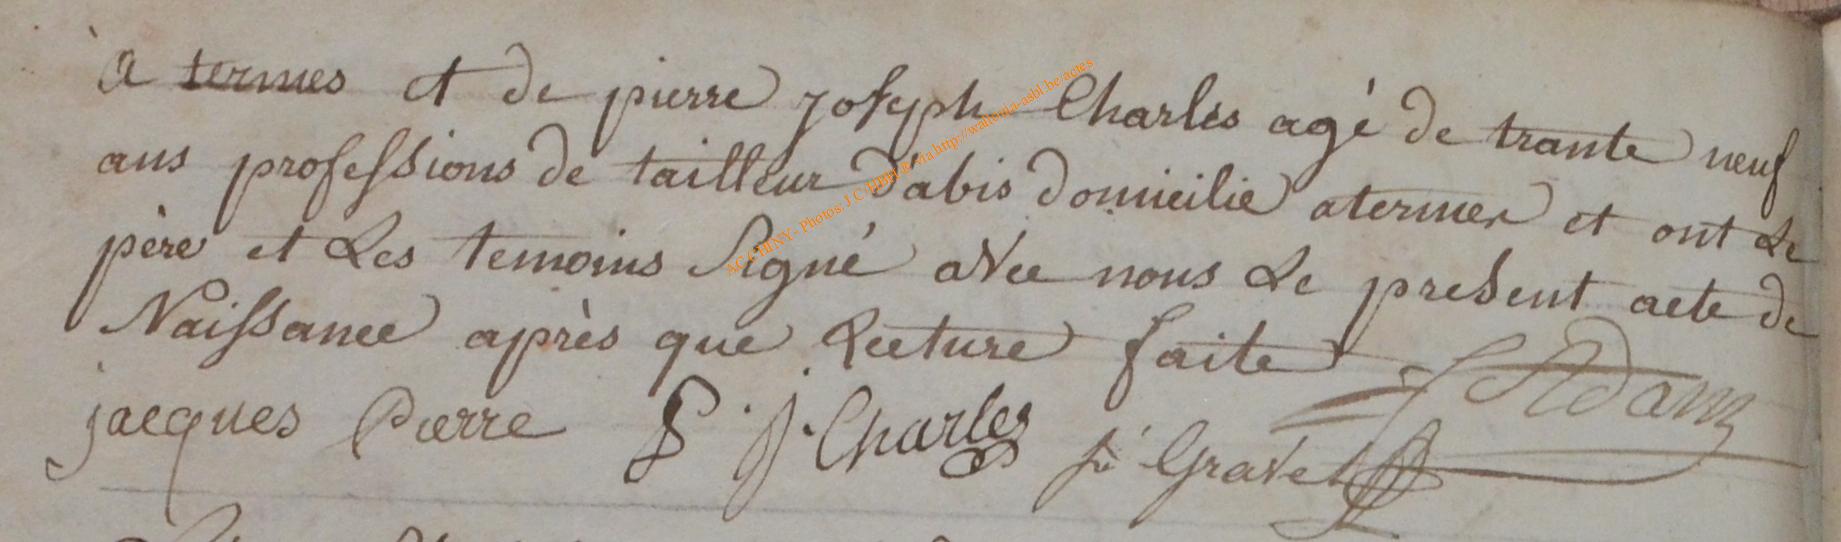 a termes et de pierre joseph Charles agé de trante neuf
ans professions de tailleur d'abis domicilié a termes et ont Le
père et Les temoins Signé avec nous Le present acte de
Naissance après que Lecture faite
jacques Pierre P. j. Charles Gravet Adam
AC CHINY - Photos: J.C. via http://wallonia-asbl.be/actes